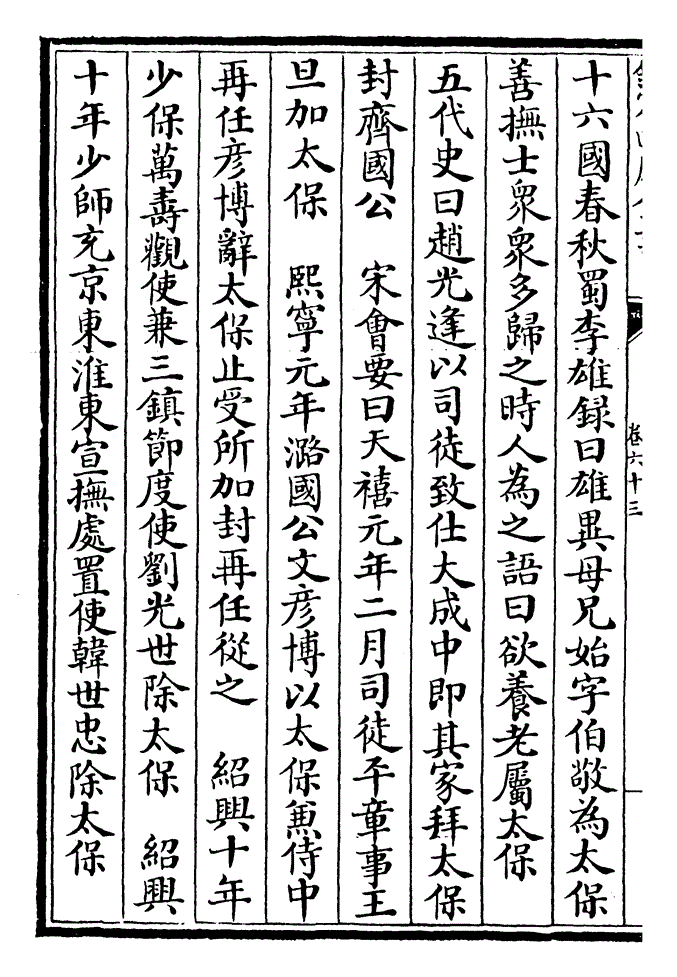 十六國春秋蜀李雄録曰雄異母兄始字伯敬為太保
善撫士衆衆多歸之時人為之語曰欲養老屬太保
五代史曰趙光逢以司徒致仕大成中即其家拜太保
封齊國公　宋會要曰天禧元年二月司徒平章事王
旦加太保　熙寧元年潞國公文彦博以太保兼侍中
再任彦博辭太保止受所加封再任從之　紹興十年
少保萬壽觀使兼三鎮節度使劉光世除太保　紹興
十年少師充京東淮東宣撫處置使韓世忠除太保
卷六十三